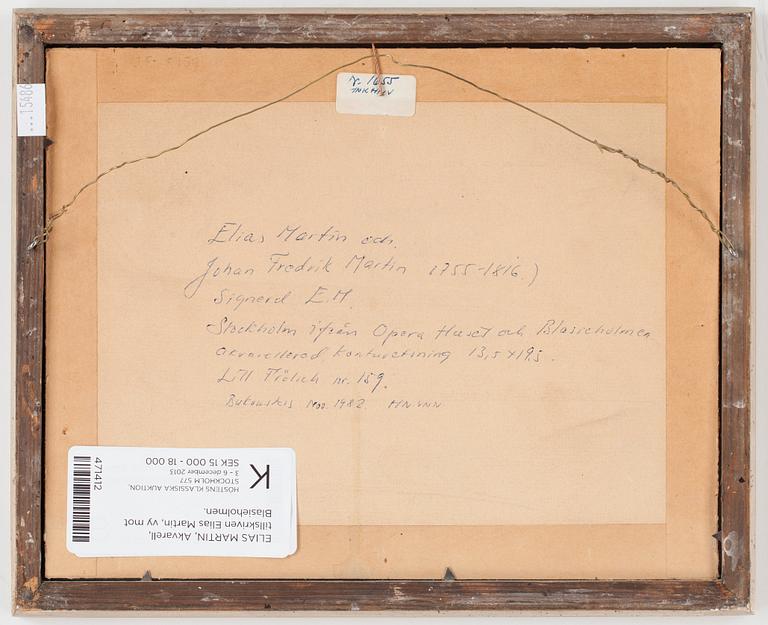 ...15486
r. 1655
Elias Martin och
Johan Fredrik Martin 1755-1816.)
Signerd E.M.
Stockholm ifrån Opera Huset och Blasieholmen
akvarellerad konturetsning 13,5 x 19,5.
Litt Frölich nr. 159.
Bukowskis Nov. 1982.
ELIAS MARTIN, Akvarell,
tillskriven Elias Martin, vy mot
Blasieholmen.
HÖSTENS KLASSISKA AUKTION,
STOCKHOLM 577
3 - 6 december 2013
SEK 15 000 - 18 000
K
471412